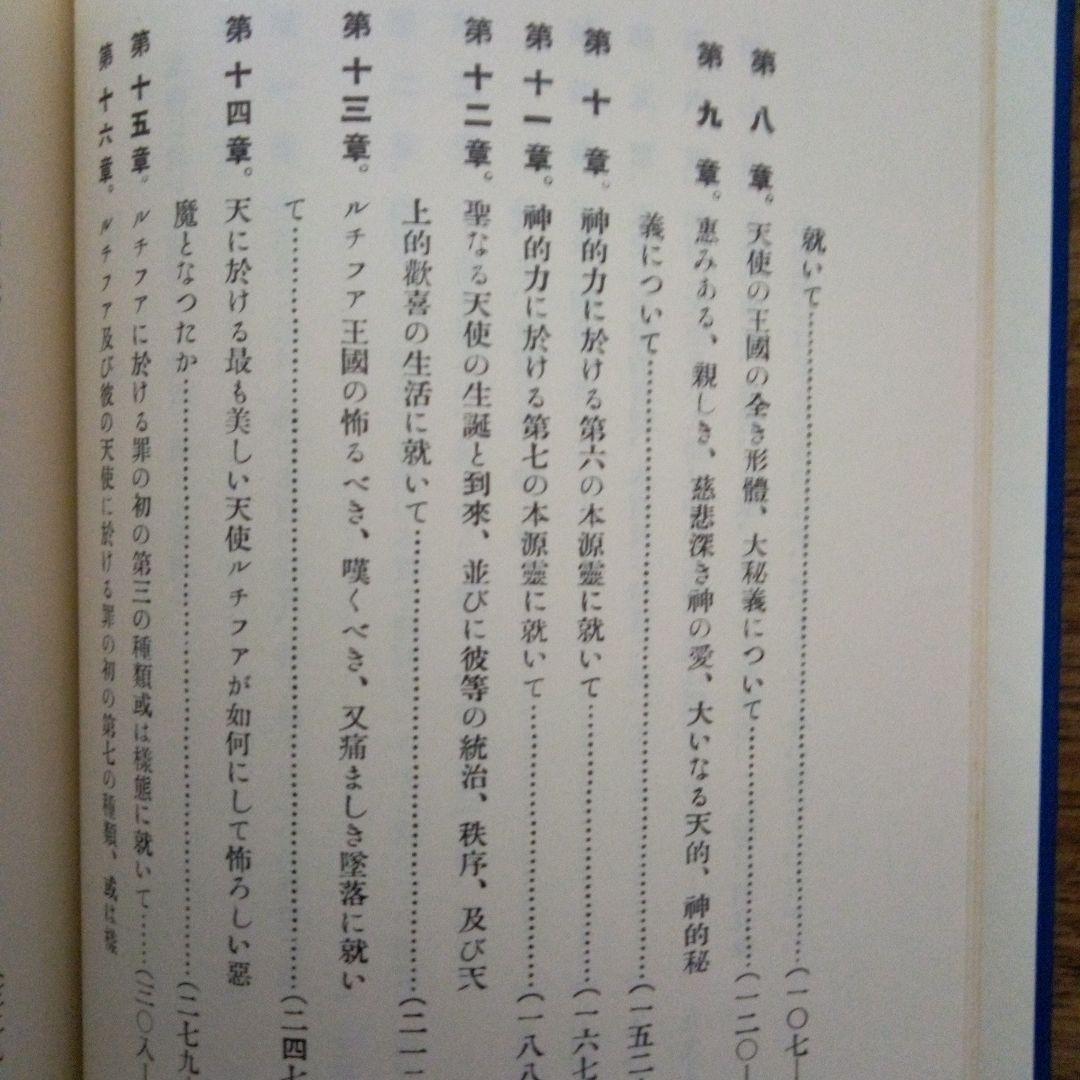 就いて……………………………………(一〇七—
第八章。天使の王國の全き形體、大秘義について……………………(一二〇—
第九章。惠みある、親しき、慈悲深き神の愛、大いなる天的、神的秘
義について……………………………………(一五二
第十章。神的力に於ける第六の本源靈に就いて……………………(一六七
第十一章。神的力に於ける第七の本源靈に就いて……………………(一八八
第十二章。聖なる天使の生誕と到來、並びに彼等の統治、秩序、及び天
上的歡喜の生活に就いて……………………………………(二一一
第十三章。ルチファ王國の怖るべき、嘆くべき、又痛ましき墜落に就い
て……………………………………(二四七
第十四章。天に於ける最も美しい天使ルチファが如何にして怖ろしい惡
魔となつたか……………………………………(二七九
第十五章。ルチファに於ける罪の初の第三の種類或は樣態に就いて……(三〇八—
第十六章。ルチファ及び彼の天使に於ける罪の初の第七の種類、或は樣